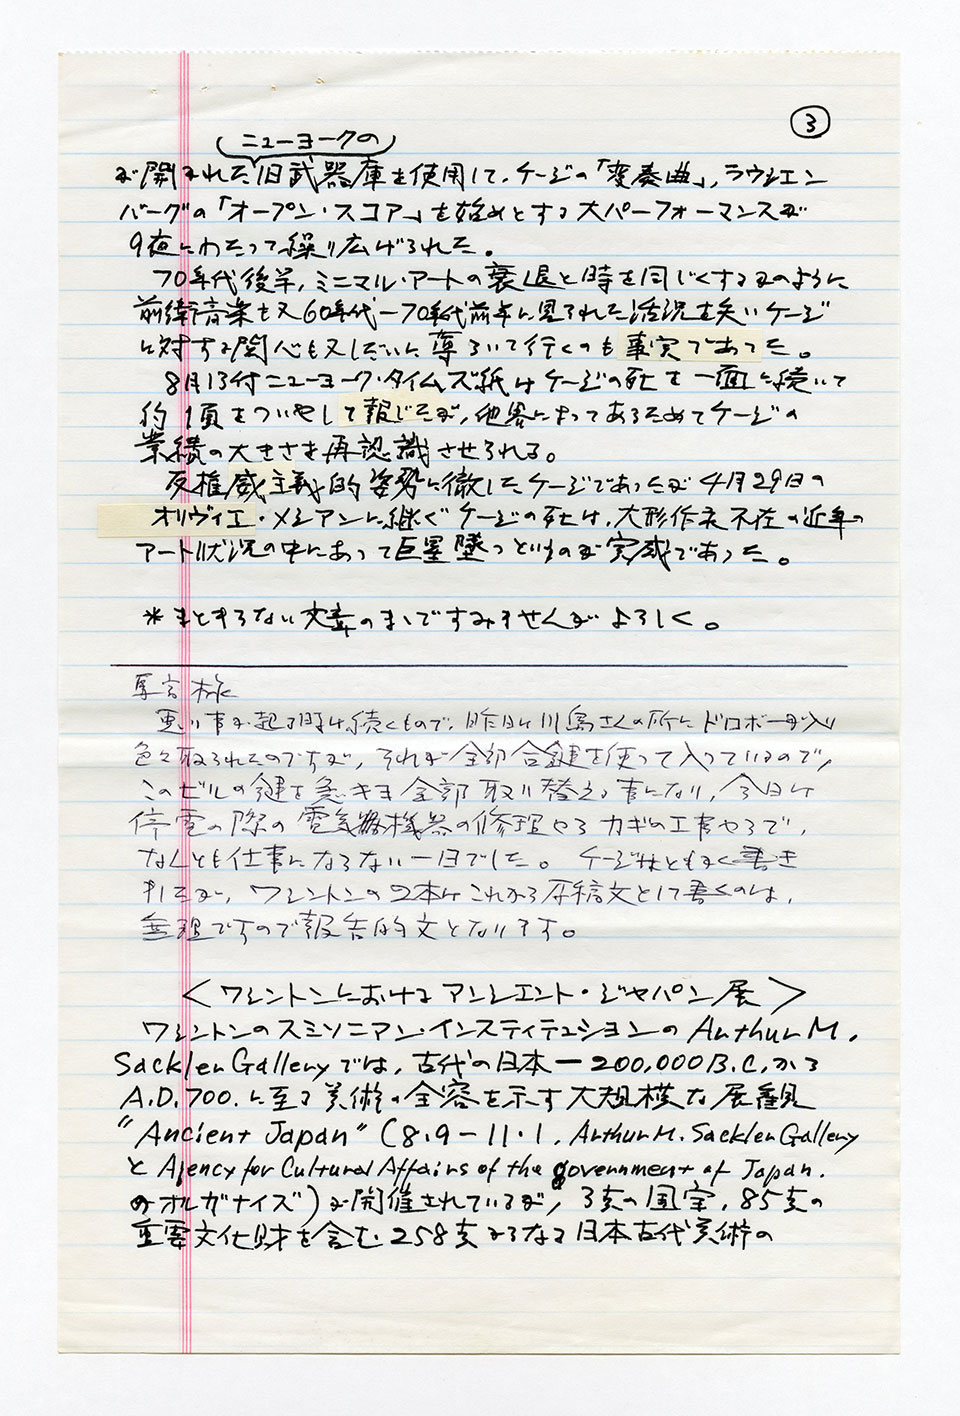 ③
ニューヨークの
が開かれた旧武器庫を使用して、ケージの「変奏曲」、ラウシェン
バーグの「オープン・スコア」を始めとする大パーフォーマンスが
9夜にわたって繰り広げられた。
70年代後半、ミニマル・アートの衰退と時を同じくするかのように
前衛音楽も又60年代−70年代前半に見られた活況を失いケージ
に対する関心も又しだいに薄らいで行くのも事実であった。
8月13付ニューヨーク・タイムズ紙はケージの死を一面に続いて
約1頁をついやして報じたが、他界によってあらためてケージの
業績の大きさを再認識させられる。
反権威主義的姿勢に徹したケージであったが4月29日の
オリヴィエ・メシアンに継ぐケージの死は、大形作家不在の近年の
アート状況の中にあって巨星墜つというのが実感であった。
＊まとまらない文章のまゝですみませんがよろしく。
様
悪い事が起る時は続くもので、昨日は川島さんの所にドロボーが入り
色々取られたのですが、それが全部合鍵を使って入っているので、
このビルの鍵を急きょ全部取り替える事になり、今日は
停電の際の電気機器の修理やらカギの工事やらで、
なんとも仕事にならない一日でした。ケージはともかく書き
ましたが、ワシントンの2本はこれから原稿文として書くのは、
無理ですので報告的文となります。
＜ワシントンにおけるアンシエント・ジャパン展＞
ワシントンのスミソニアン・インスティテュションのArthur M.
Sackler Galleryでは、古代の日本−200,000B.C.から
A.D.700.に至る美術の全容を示す大規模な展観
"Ancient Japan"(8.9−11.1, Arthur M. Sackler Gallery
と Agency for Cultural Affairs of the government of Japan.
のオルガナイズ)が開催されているが、3支の国宝、85支の
重要文化財を含む258支からなる日本古代美術の